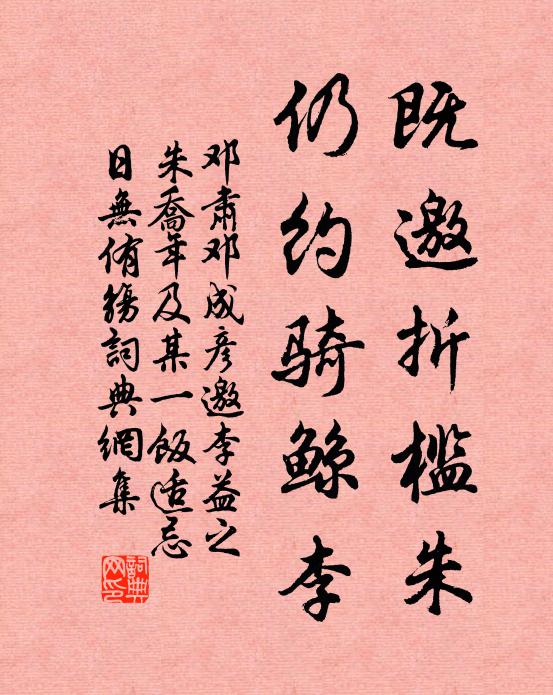 既邀折槛朱
仍约骑鲸李
邓肃邓成彦邀李益之
朱喬年及某一飯适忌
日無侑觴詞典網集
詞典网印